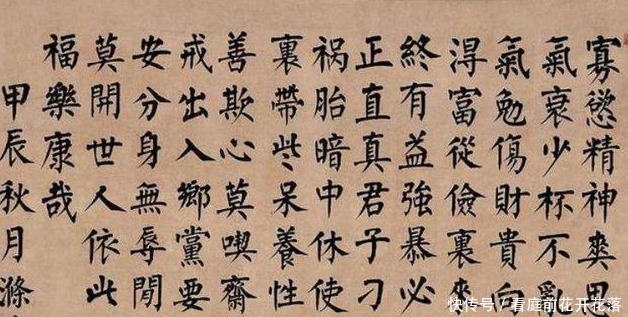 寡慾精神爽思
氣衰少杯不亂
氣勉傷財貴自
淂富從儉裏來
終有益強暴必
正直真君子刁
祸胎暗中休使
裏帶些呆養性
善欺心莫喫齋
戒出入鄉黨要
安分身無辱閒
莫開世人依此
福樂康哉
甲辰秋月滌
快传号/看庭前花开花落